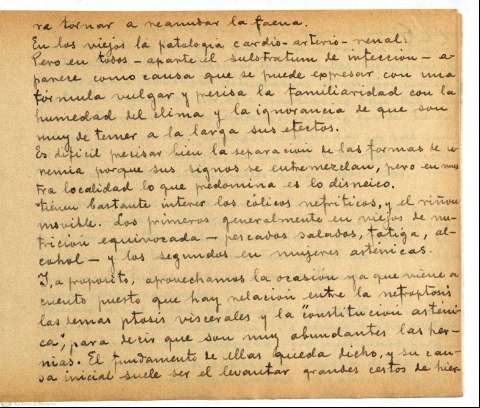 ra tornar a reanudar la faena.
En los viejos la patología cardio-arterio-renal.
Pero en todos - aparte el substratum de infección - a-
parece como causa que se puede expresar con una
fórmula vulgar y precisa la familiaridad con la
humedad del clima y la ignorancia de que son
muy de temer a la larga sus efectos.
Es difícil precisar bien la separación de las formas de u-
remia porque sus signos se entremezclan, pero en nues
tra localidad lo que predomina es lo disneico.
Tienen bastante interés los cólicos nefríticos, y el riñón
movible. Los primeros generalmente en viejos de nu-
trición equivocada - pescados salados, fatiga, al-
cohol - y los segundos en mujeres asténicas.
Y, a propósito, aprovechamos la ocasión ya que viene a
cuento puesto que hay relación entre la nefroptosis
las demas ptosis viscerales y la "constitución asténi-
ca", para decir que son muy abundantes las her-
nias. El fundamento de ellas queda dicho, y su cau-
sa inicial suele ser el levantar grandes cestos de hier-